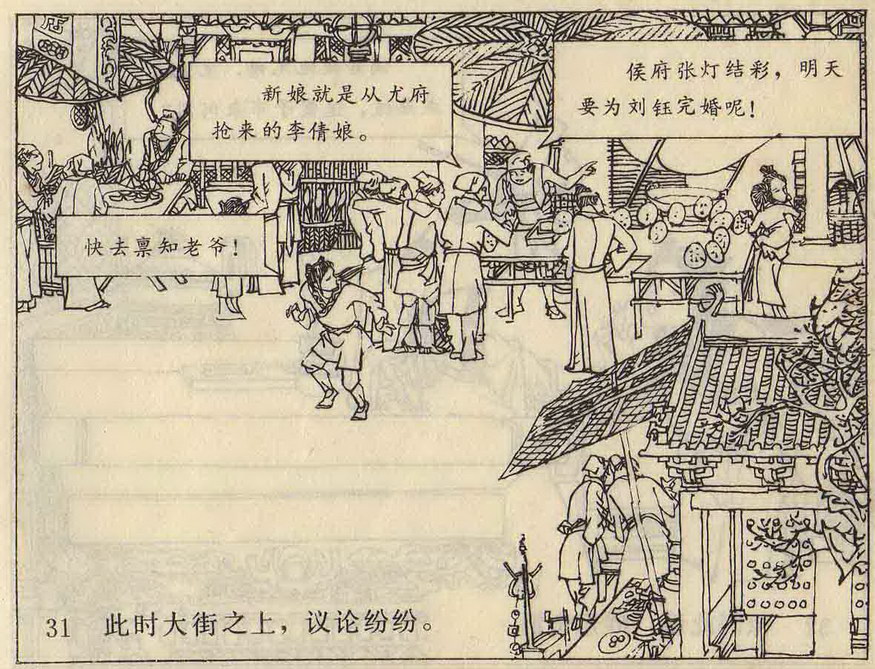 侯府张灯结彩，明天
要为刘钰完婚呢！
新娘就是从尤府
抢来的李倩娘。
快去禀知老爷！
31 此时大街之上，议论纷纷。